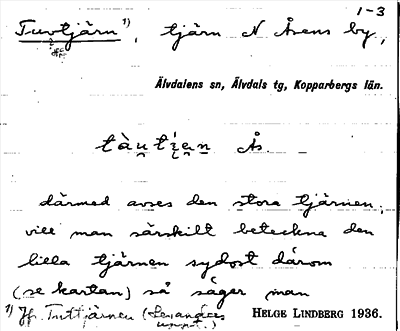 1-3
Tuvtjärn 1), tjärn N Åsens by,
Älvdalens sn, Älvdals tg, Kopparbergs län.
Ås.
därmed avses den stora tjärnen;
vill man särskilt beteckna den
lilla tjärnen sydost därom
(se kartan) så säger man
1) Jfr Tuttjärnen (Levanders
uppt.)
HELGE LINDBERG 1936.